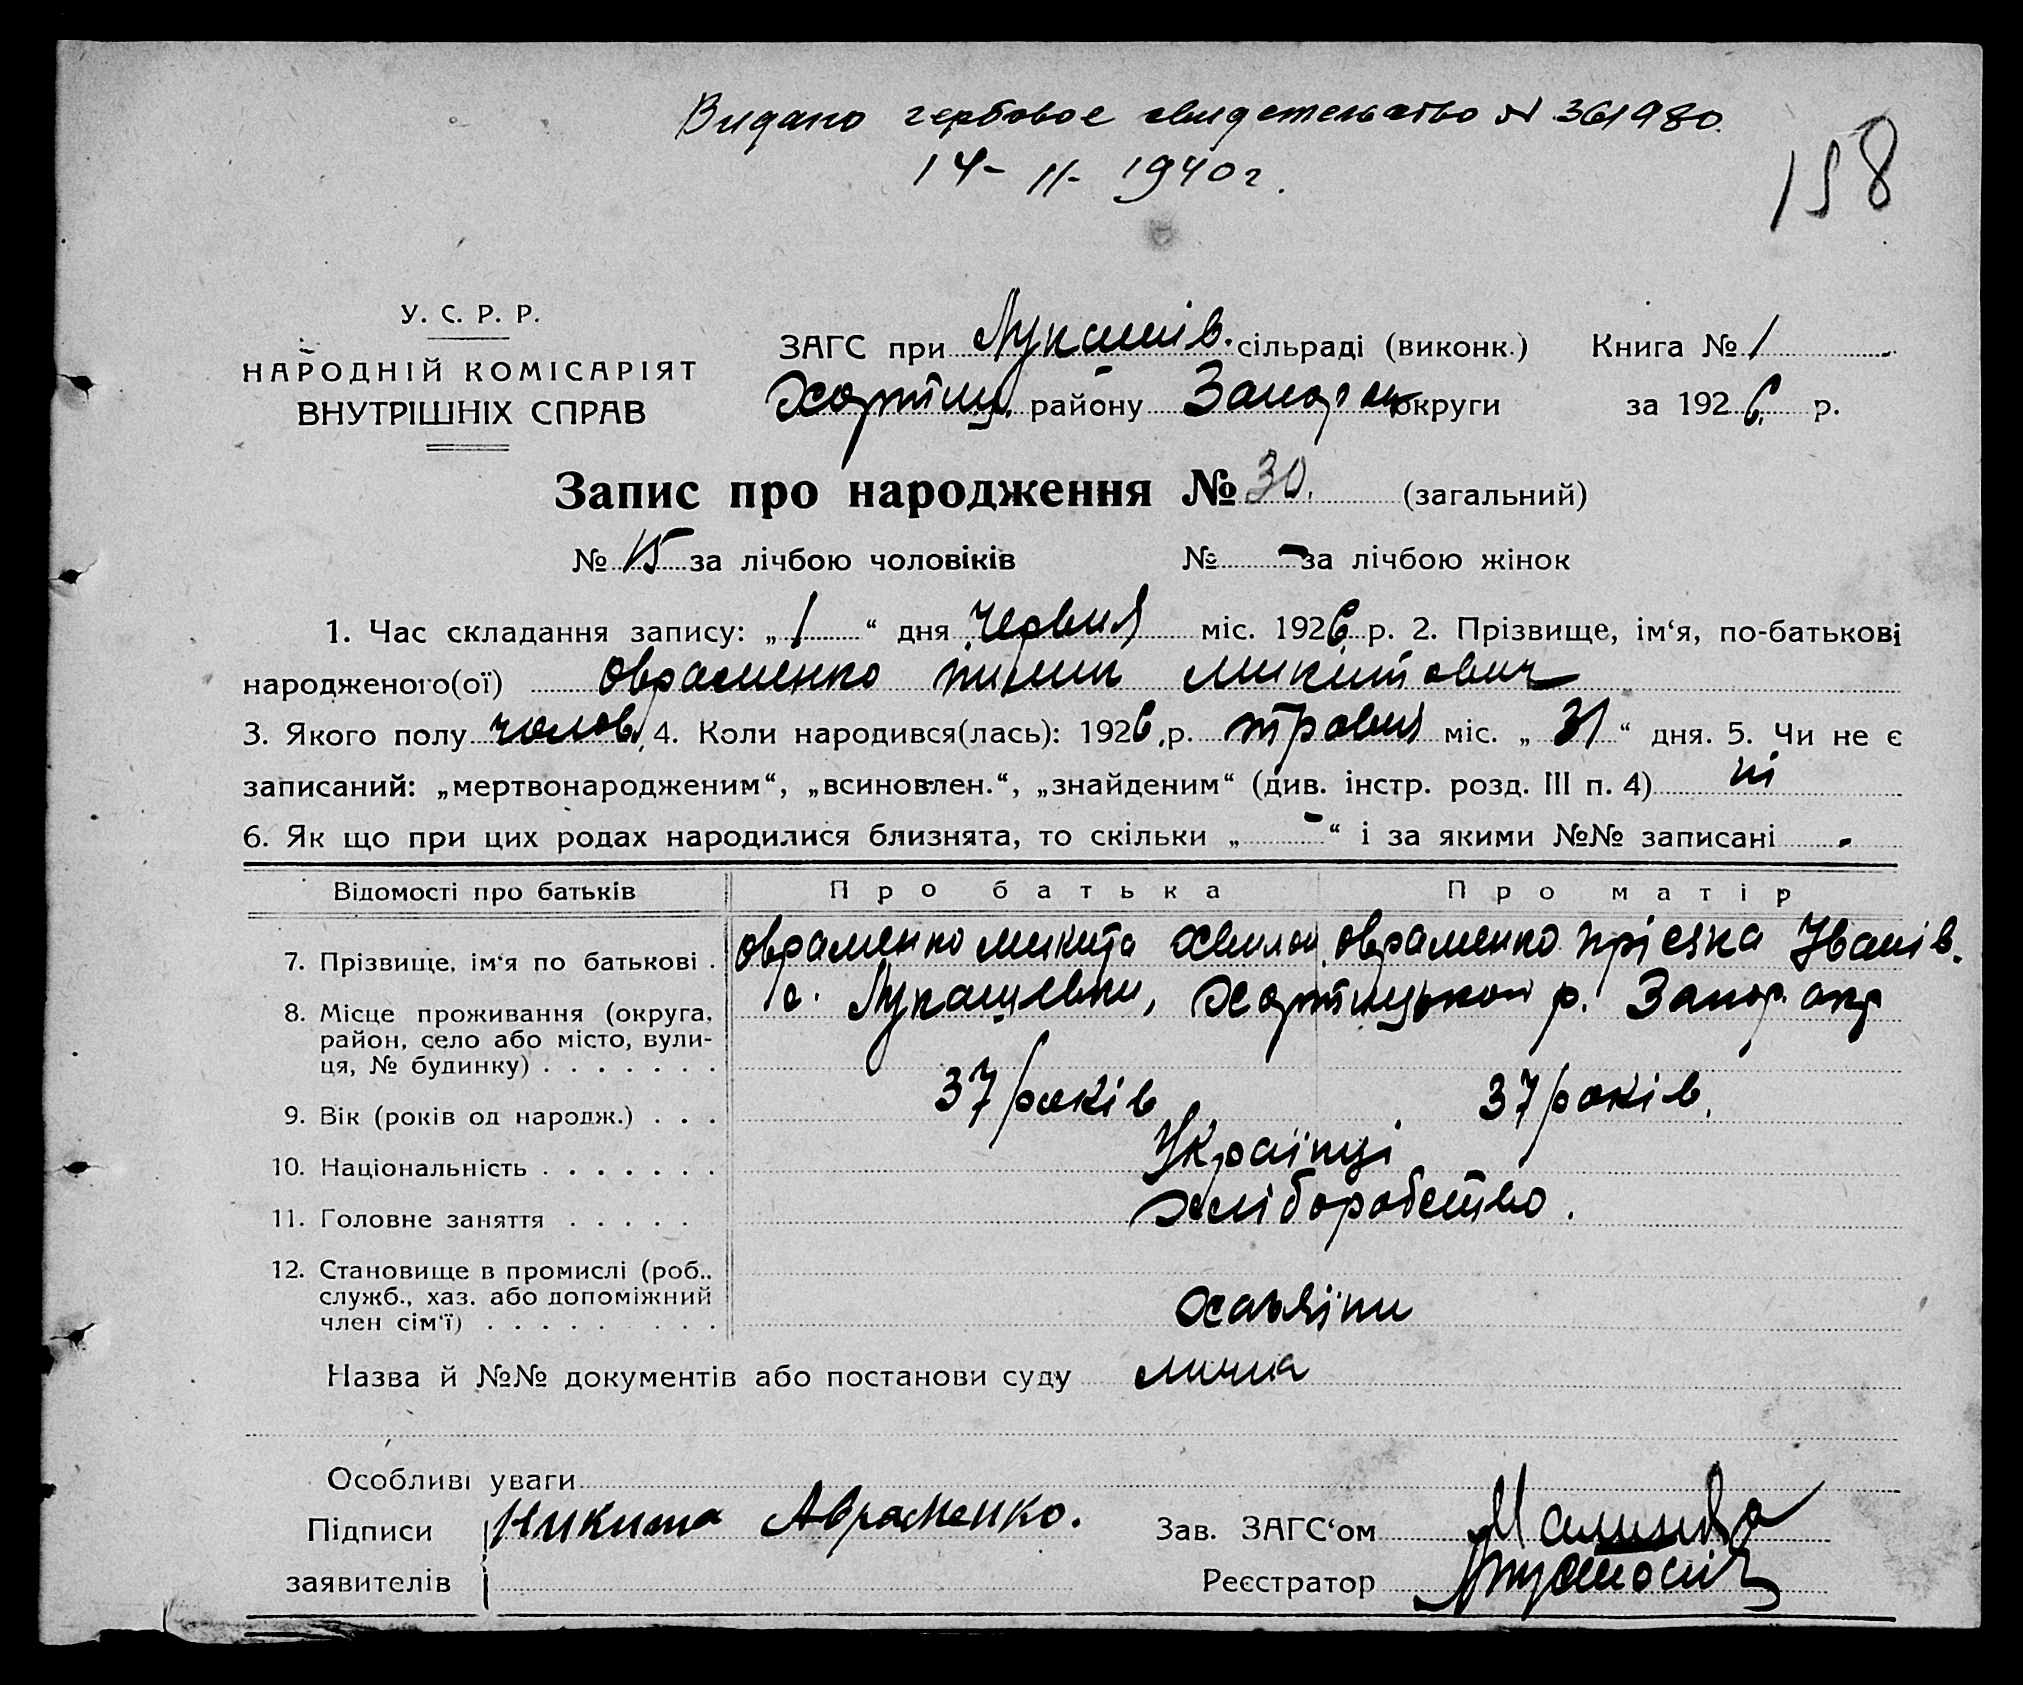 Видано гербовое свидетельство № 361980.
14 - II - 1940 г.
158
У. С. Р. Р.
НАРОДНІЙ КОМІСАРІЯТ
ВНУТРІШНІХ СПРАВ
ЗАГС при Лукашів. сільраді (виконк.) Книга № 1
Хортиц. району Запоріж округи за 1926 р.
Запис про народження № 30. (загальний)
№ 15 за лічбою чоловіків № - за лічбою жінок
1. Час складання запису: „ 1 “ дня Червня міс. 1926 р. 2. Прізвище, ім‘я, по-батькові
народженого(ої) Овраменко Пилип Микитович
3. Якого полу чолов. 4. Коли народився(лась): 1926 р. травня міс. „ 31 “ дня. 5. Чи не є
записаний: „мертвонародженим“, „всиновлен.“, „знайденим“ (див. інстр. розд. III п. 4) ні
6. Як що при цих родах народилися близнята, то скільки „ - “ і за якими №№ записані -
Відомості про батьків Про батька Про матір
7. Прізвище, ім‘я по батькові . Овраменко Микита Овраменко Пріська Іванів.
8. Місце проживання (округа, район, село або місто, вулиця, № будинку) . . . . . . . с. Лукашевки, Хортицького р. Запор. окр
9. Вік (років од народж.) . . . 37 років 37 років.
10. Національність . . . . . . . Українці
11. Головне заняття . . . . . Хліборобство.
12. Становище в промислі (роб.. служб., хаз. або допоміжний член сім‘ї) . . . . . . . . хазяіни
Назва й №№ документів або постанови суду лична
Особливі уваги
Підписи Никита Авраменко. Зав. ЗАГС‘ом
заявителів Реєстратор